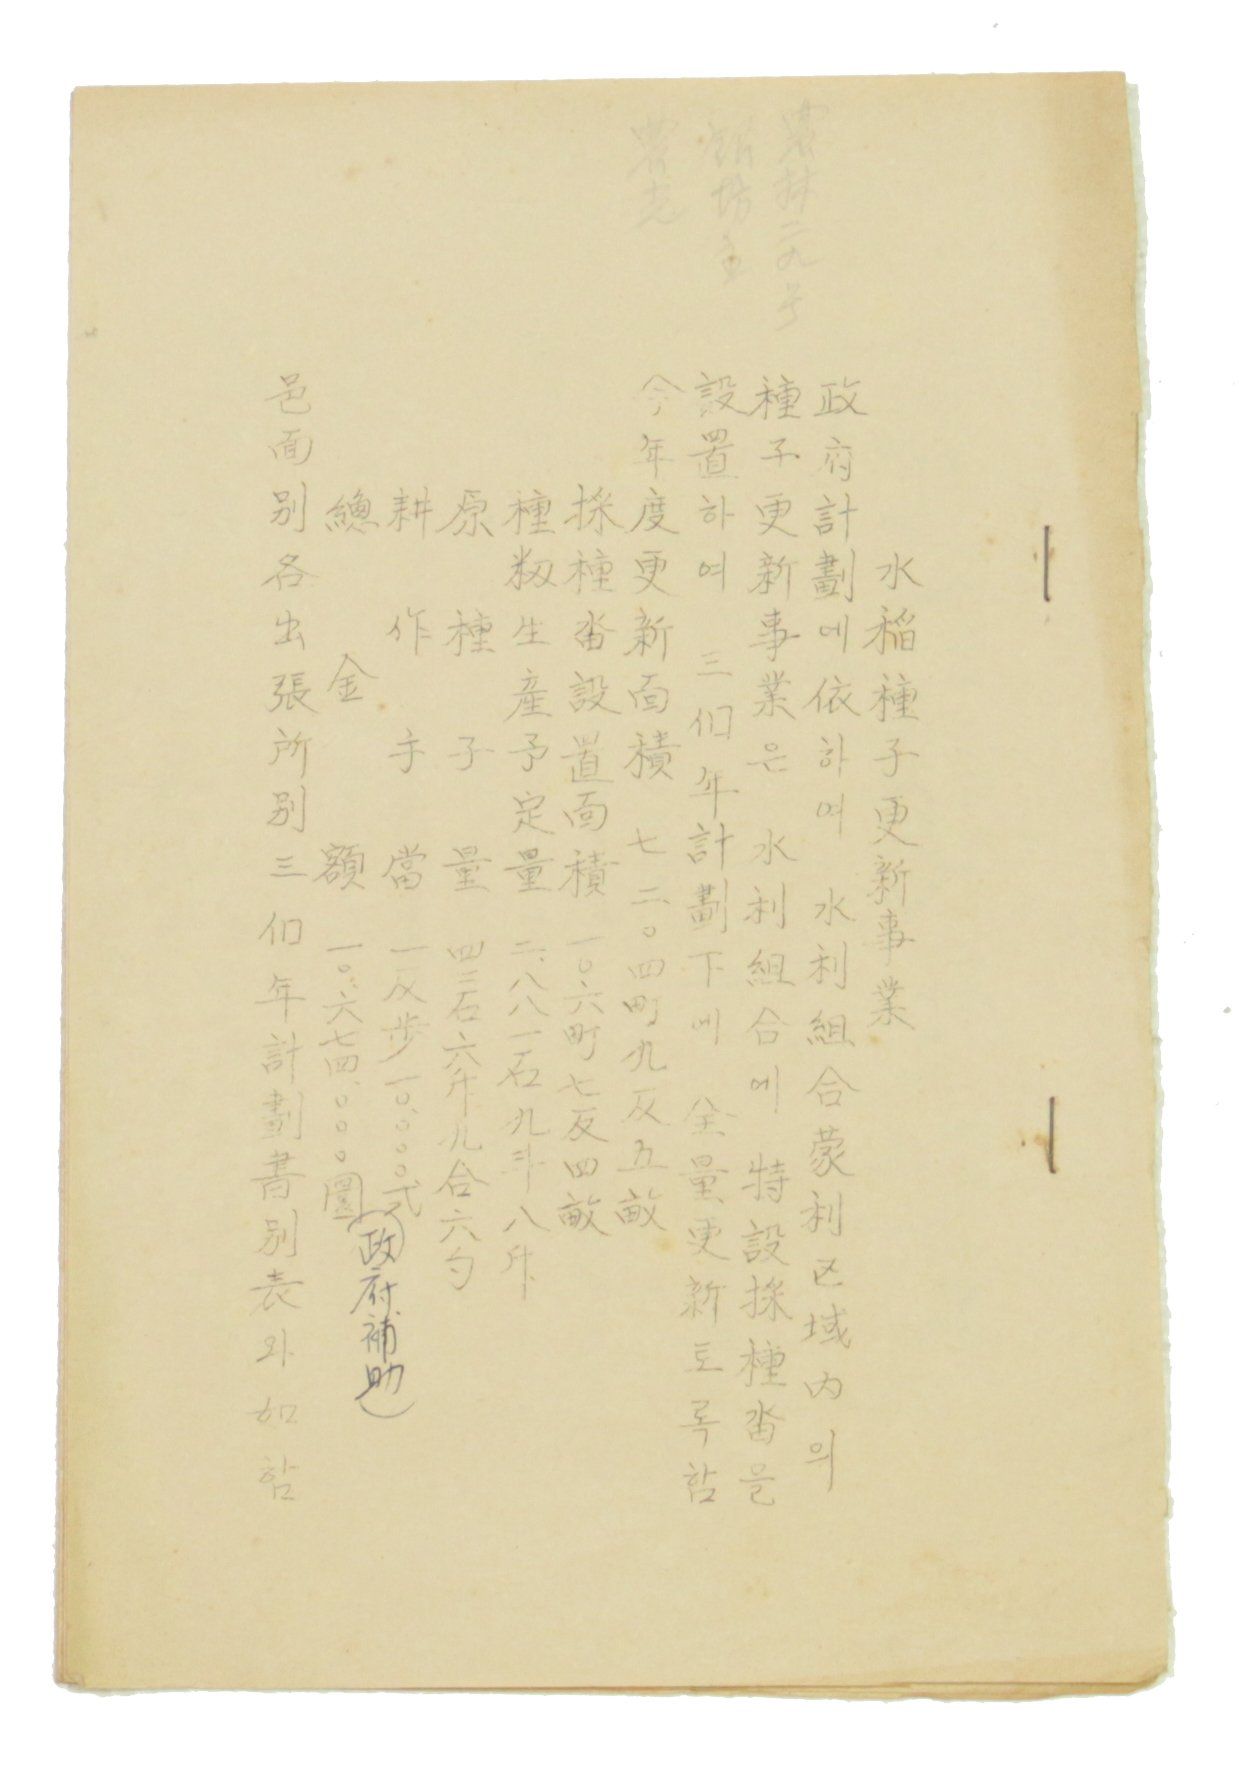 農林二九号
農
水稲種子更新事業
政府計劃에依하여 水利組合蒙利区域内의
種子更新事業은 水利組合에 特設採種畓을
設置하여 三個年計劃下에 全量更新토록함
今年度更新面積 七二〇四町九反五畝
採種畓設置面積 一〇六町七反四畝
種籾生産予定量 二、八八一石九斗八升
原種子量 四三石六升九合六勺
耕作手當 一反步一〇.〇〇〇式
總金額 一〇.六七四.〇〇〇圜
(政府補助)
邑面別各出張所別三個年計劃書別表와如함